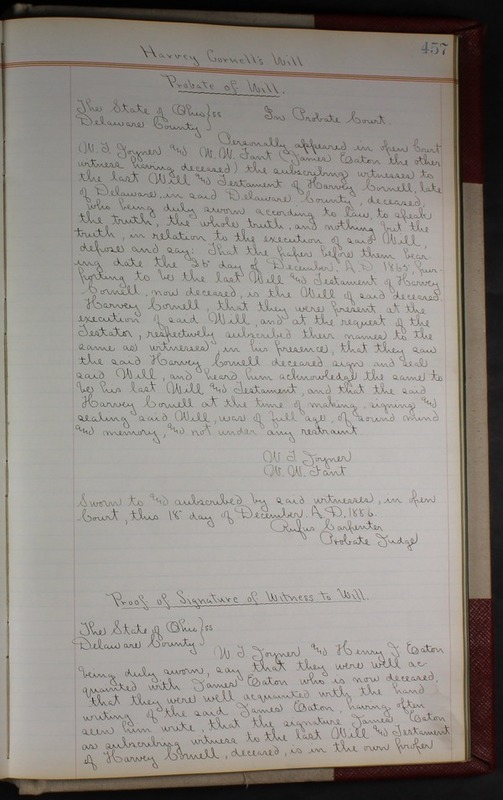 457
Harvey Cornell's Will
Probate of Will.
The State of Ohio } ss In Probate Court.
Delaware County }
Personally appeared in open Court
W. T. Joyner and W. W. Fant (James Eaton the other
witness having deceased) the subscribing witnesses to
the last Will and Testament of Harvey Cornell, late
of Delaware, in said Delaware County, deceased,
who being duly sworn according to law, to speak
the truth, the whole truth, and nothing but the
truth, in relation to the execution of said Will,
depose and say: That the paper before them bear-
ing date the day of December, A.D. 1865, pur-
porting to be the last Will and Testament of Harvey
Cornell, now deceased, is the Will of said deceased
Harvey Cornell, that they were present at the
execution of said Will, and at the request of the
Testator, respectively subscribed their names to the
same as witnesses in his presence, that they saw
the said Harvey Cornell deceased sign and seal
said Will, and heard him acknowledge the same to
be his last Will and Testament, and that the said
Harvey Cornell at the time of making, signing and
sealing said Will, was of full age, of sound mind
and memory, and not under any restraint.
W. T. Joyner
W. W. Fant
Sworn to and subscribed by said witnesses, in open
Court, this 18" day of December A.D. 1886.
Rufus Carpenter
Probate Judge
Proof of Signature of Witness to Will.
The State of Ohio } ss
Delaware County }
W. T. Joyner and Henry J. Eaton
being duly sworn, say that they were well ac-
quainted with James Eaton who is now deceased,
that they were well acquainted with the hand
writing of the said James Eaton, having often
seen him write, that the signature James Eaton
as subscribing witness to the last Will and Testament
of Harvey Cornell, deceased, is in the own proper